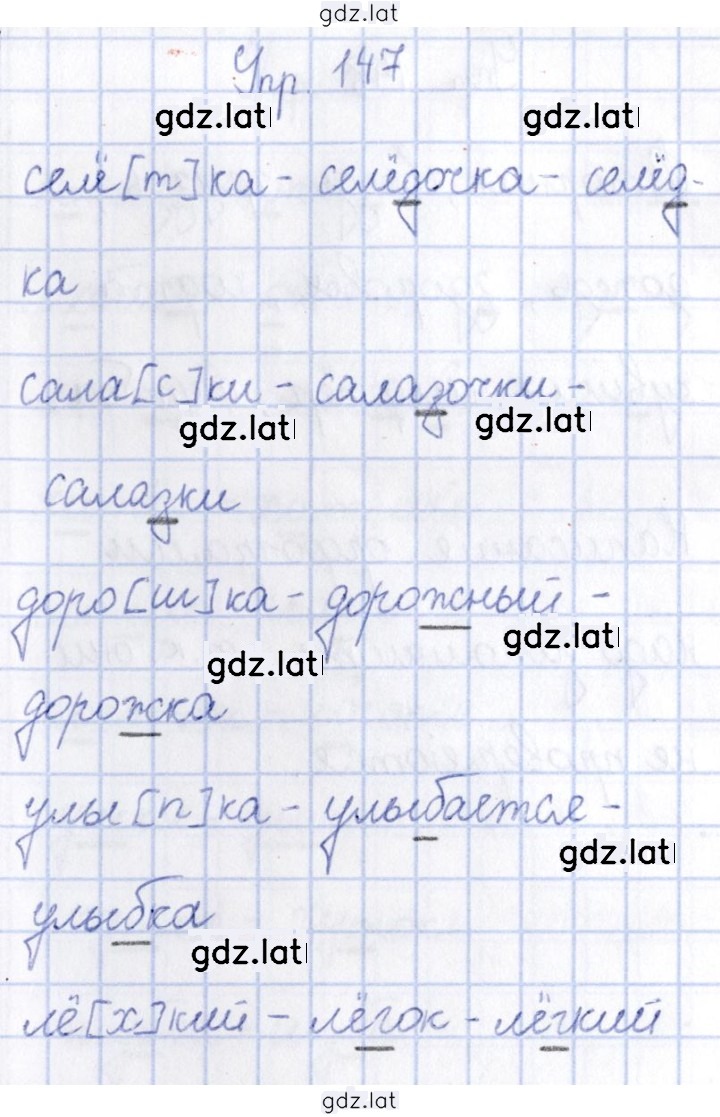 gdz.lat
Упр. 147
gdz.lat gdz.lat
селё[т]ка - селёдочка - селёд-
ка
сала[с]ки - салазочки -
gdz.lat gdz.lat
салазки
доро[ш]ка - дорожный -
gdz.lat gdz.lat
дорожка
улы[п]ка - улыбается -
gdz.lat
улыбка
gdz.lat
лё[х]кий - лёгок - лёгкий
gdz.lat